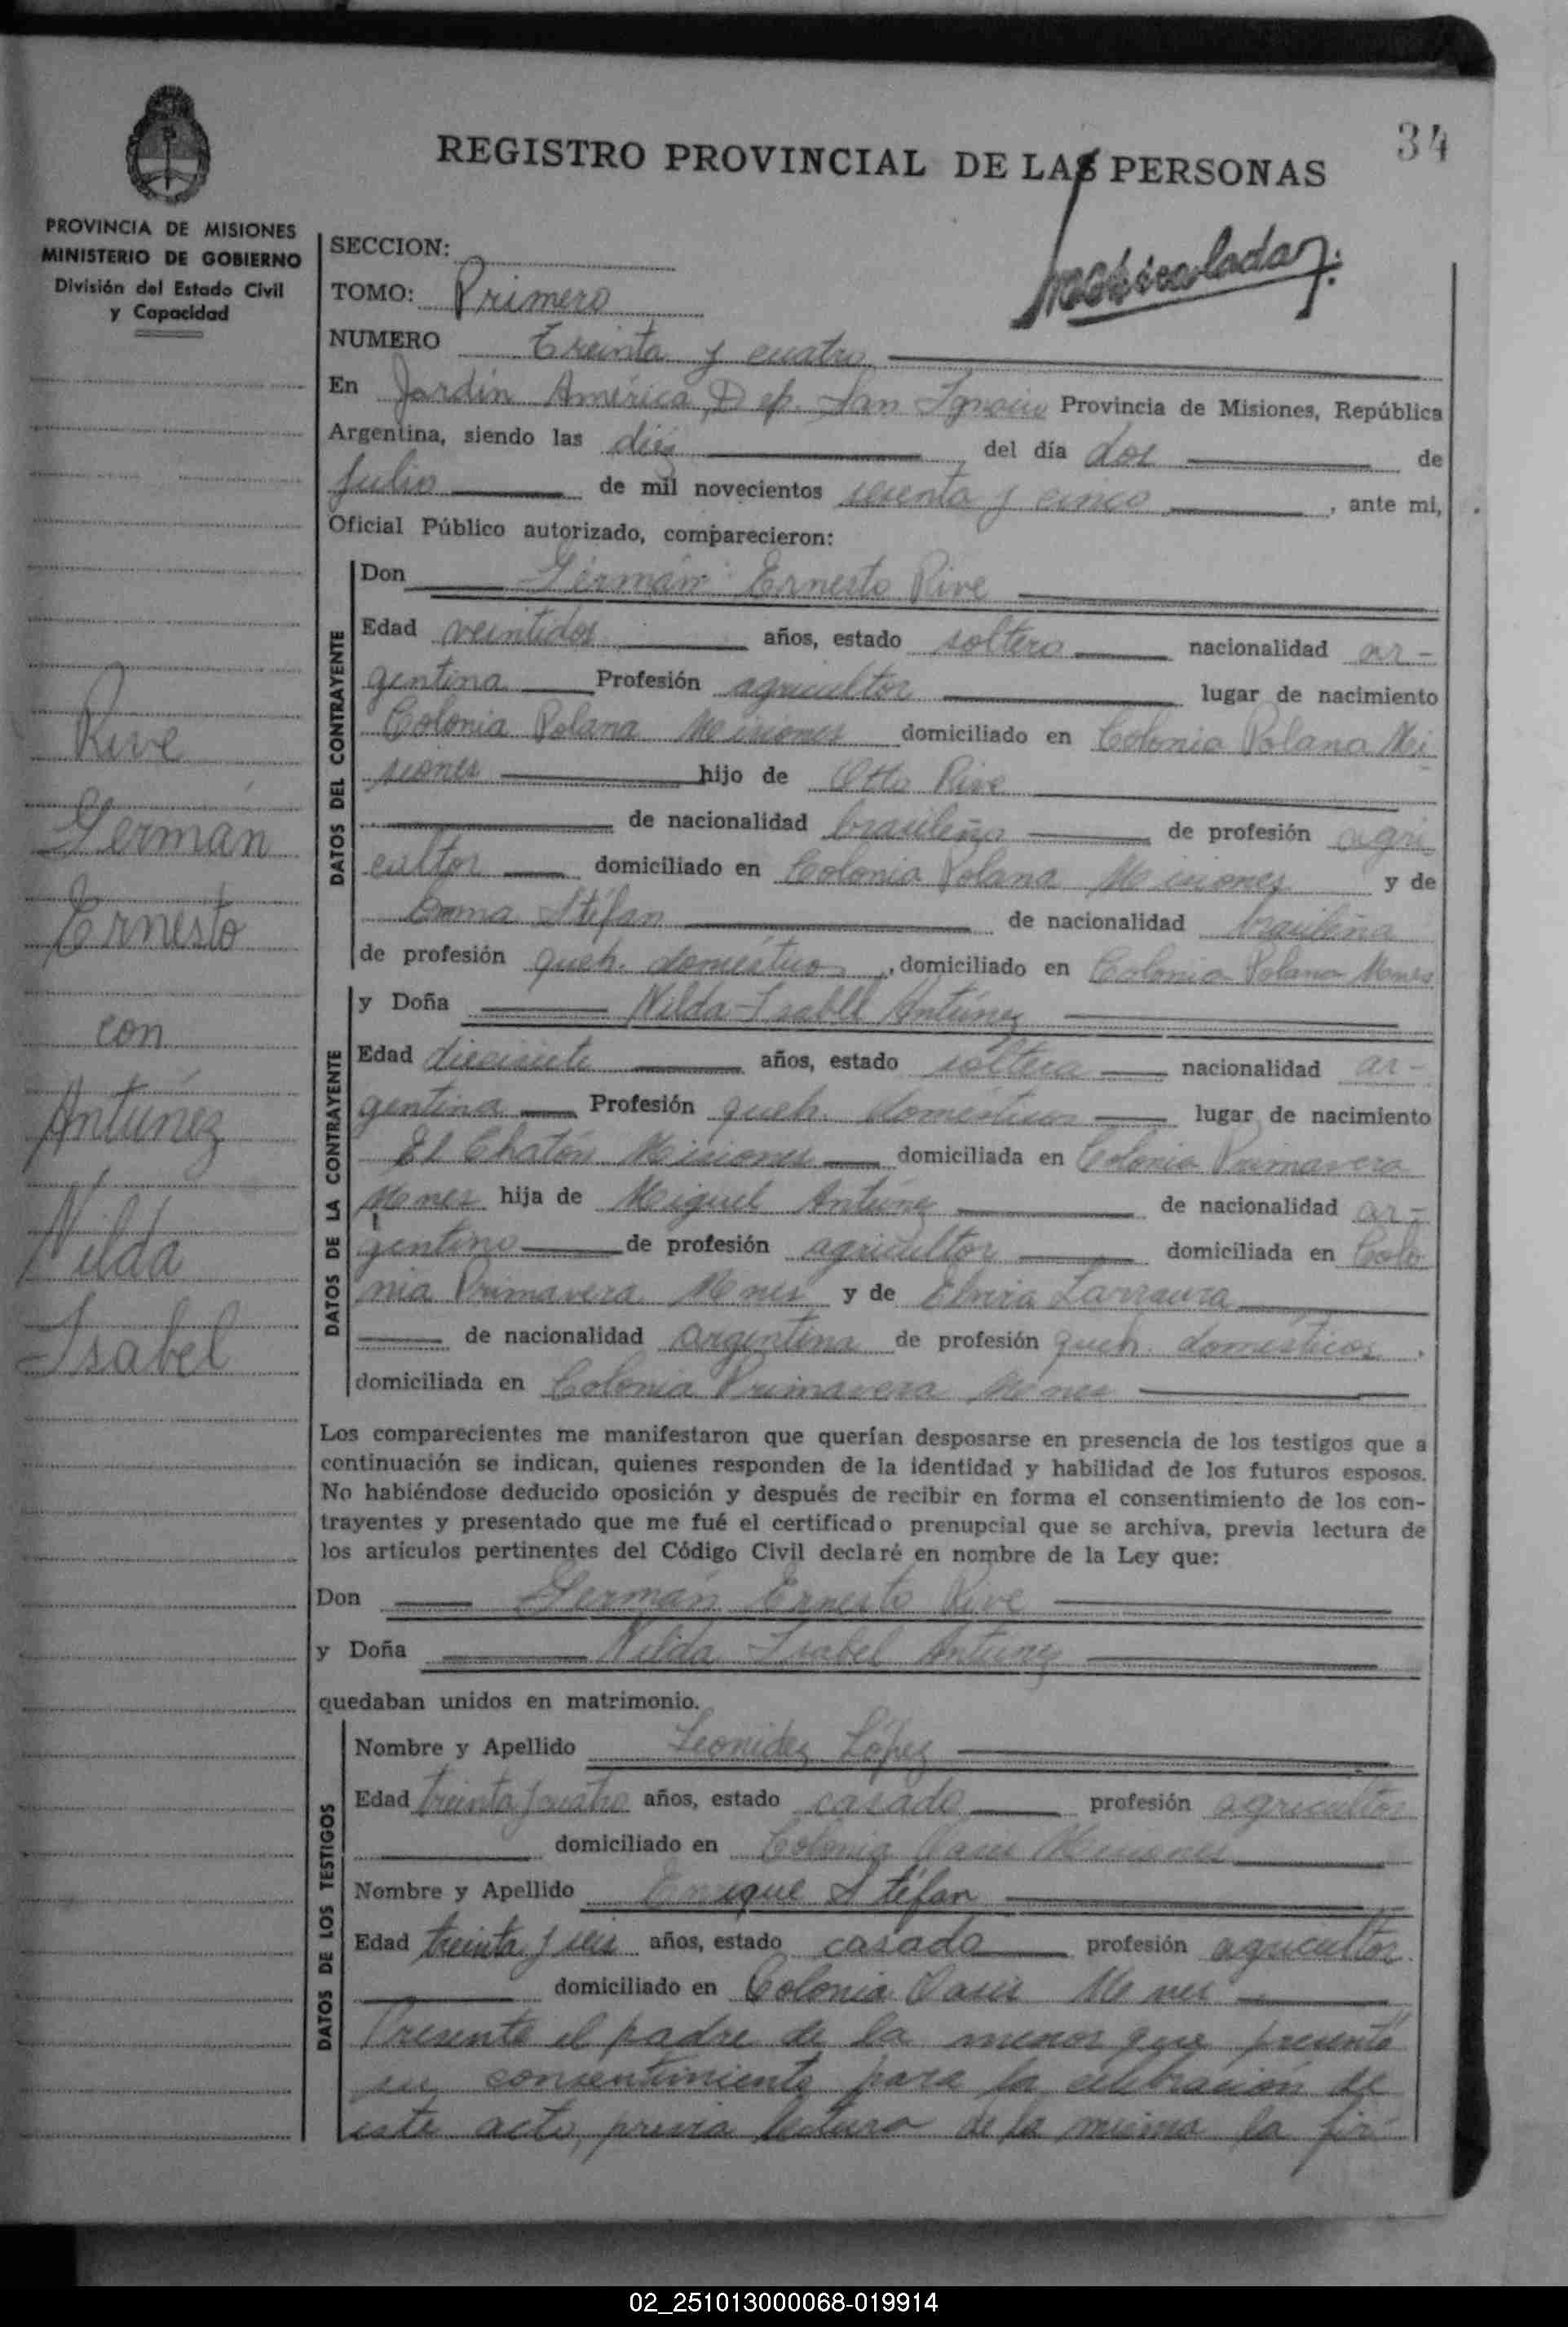 34
REGISTRO PROVINCIAL DE LAS PERSONAS
PROVINCIA DE MISIONES
MINISTERIO DE GOBIERNO
División del Estado Civil
y Capacidad
SECCION:
TOMO: Primero
NUMERO Treinta y cuatro
En Jardín América, Dep. San Ignacio Provincia de Misiones, República
Argentina, siendo las diez del día dos de
Julio de mil novecientos sesenta y cinco, ante mi,
Oficial Público autorizado, comparecieron:
DATOS DEL CONTRAYENTE
Don Germán Ernesto Rive
Edad veintidos años, estado soltero nacionalidad ar-
gentina Profesión agricultor lugar de nacimiento
Colonia Polana Misiones domiciliado en Colonia Polana Mi
siones hijo de Otto Rive
de nacionalidad brasileña de profesión agri
cultor domiciliado en Colonia Polana Misiones y de
Emma Stéfan de nacionalidad brasileña
de profesión queh. domésticos, domiciliado en Colonia Polana Mones
Rive
Germán
Ernesto
con
Antúnez
Nilda
Isabel
DATOS DE LA CONTRAYENTE
y Doña Nilda Isabel Antúnez
Edad diecisiete años, estado soltera nacionalidad ar-
gentina Profesión queh. domésticos lugar de nacimiento
El Chatón Misiones domiciliada en Colonia Primavera
Mones hija de Miguel Antúnez de nacionalidad ar-
gentino de profesión agricultor domiciliada en Colo
nia Primavera Mones y de Elvira
de nacionalidad argentina de profesión queh. domésticos.
domiciliada en Colonia Primavera Mones
Los comparecientes me manifestaron que querían desposarse en presencia de los testigos que a
continuación se indican, quienes responden de la identidad y habilidad de los futuros esposos.
No habiéndose deducido oposición y después de recibir en forma el consentimiento de los con-
trayentes y presentado que me fué el certificado prenupcial que se archiva, previa lectura de
los artículos pertinentes del Código Civil declaré en nombre de la Ley que:
Don Germán Ernesto Rive
y Doña Nilda Isabel Antúnez
quedaban unidos en matrimonio.
DATOS DE LOS TESTIGOS
Nombre y Apellido Leonidez López
Edad treinta y cuatro años, estado casado profesión agricultor
domiciliado en Colonia Oasis Misiones
Nombre y Apellido Enrique Stéfan
Edad treinta y seis años, estado casado profesión agricultor
domiciliado en Colonia Oasis Mones
Presente el padre de la menor que presentó
su consentimiento para la celebración de
este acto, previa lectura de la misma la fir
02_251013000068-019914